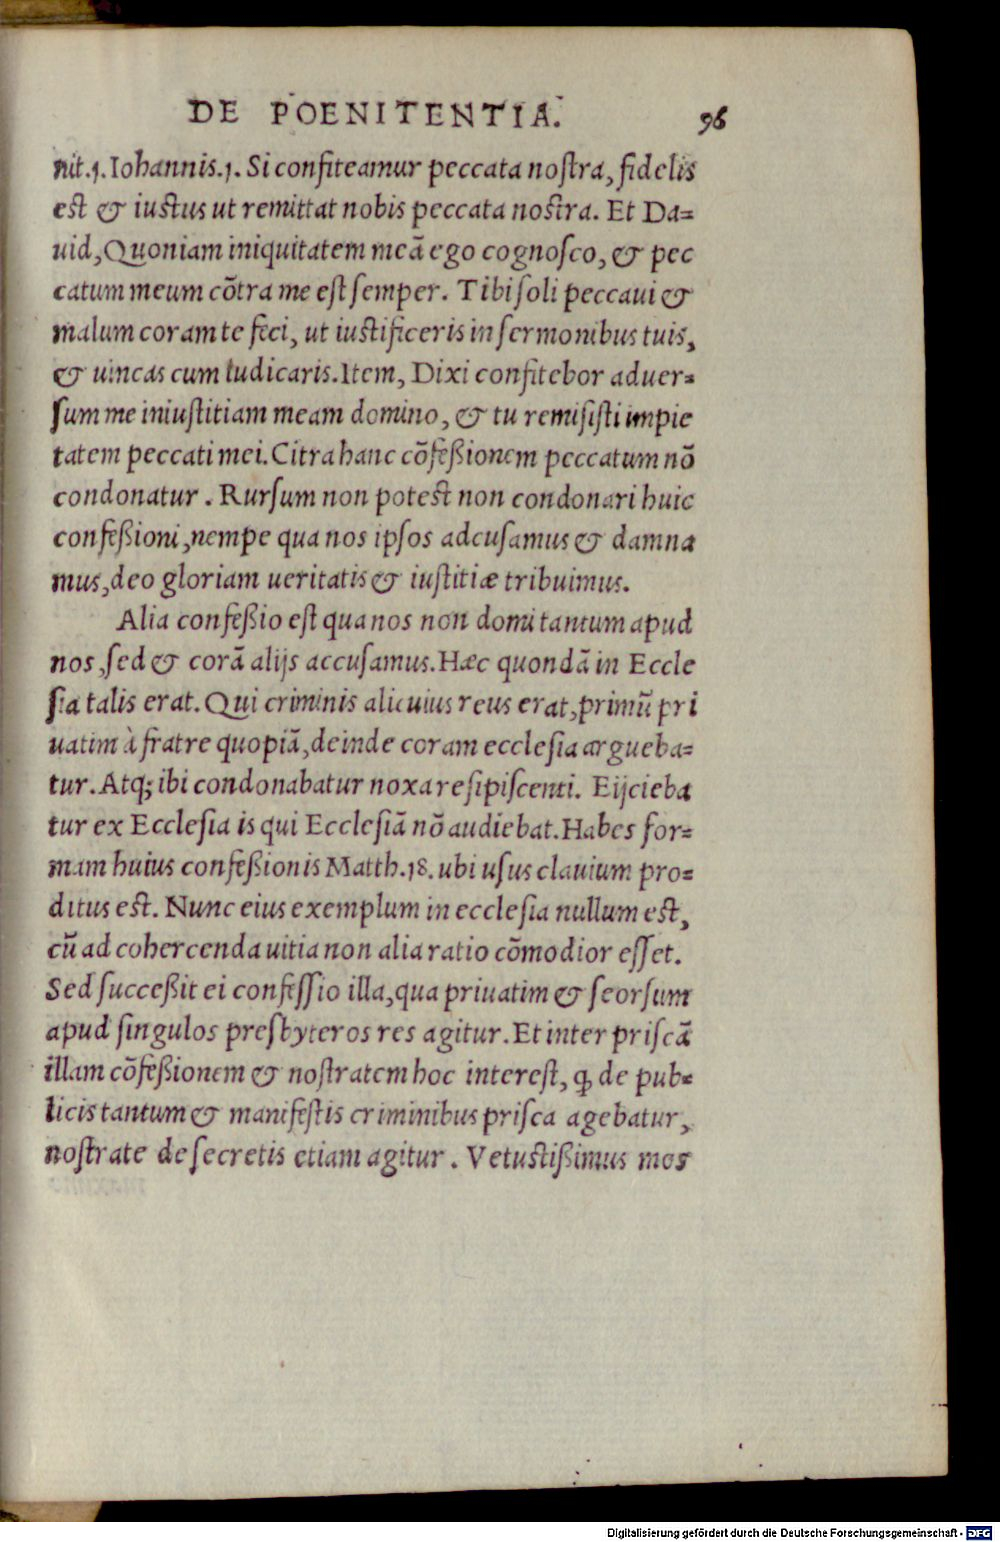 DE POENITENTIA. 96
nit.1. Iohannis.1. Si confiteamur peccata nostra, fidelis
est & iustus ut remittat nobis peccata nostra. Et Da=
uid, Quoniam iniquitatem meā ego cognosco, & pec
catum meum cōtra me est semper. Tibi soli peccaui &
malum coram te feci, ut iustificeris in sermonibus tuis,
& uincas cum iudicaris. Item, Dixi confitebor aduer=
sum me iniustitiam meam domino, & tu remisisti impie
tatem peccati mei. Citra hanc cōfeßionem peccatum nō
condonatur. Rursum non potest non condonari huic
confeßioni, nempe qua nos ipsos adcusamus & damna
mus, deo gloriam ueritatis & iustitiæ tribuimus.
Alia confeßio est qua nos non domi tantum apud
nos, sed & corā alijs accusamus. Hæc quondā in Eccle
sia talis erat. Qui criminis alicuius reus erat, primū pri
uatim à fratre quopiā, deinde coram ecclesia argueba=
tur. Atq; ibi condonabatur noxa resipiscenti. Eijcieba
tur ex Ecclesia is qui Ecclesiā nō audiebat. Habes for=
mam huius confeßionis Matth.18. ubi usus clauium pro=
ditus est. Nunc eius exemplum in ecclesia nullum est,
cū ad cohercenda uitia non alia ratio cōmodior esset.
Sed succeßit ei confessio illa, qua priuatim & seorsum
apud singulos presbyteros res agitur. Et inter priscā
illam cōfeßionem & nostratem hoc interest, ꝙ de pub=
licis tantum & manifestis criminibus prisca agebatur,
nostrate de secretis etiam agitur. Vetustißimus mos
Digitalisierung gefördert durch die Deutsche Forschungsgemeinschaft - DFG